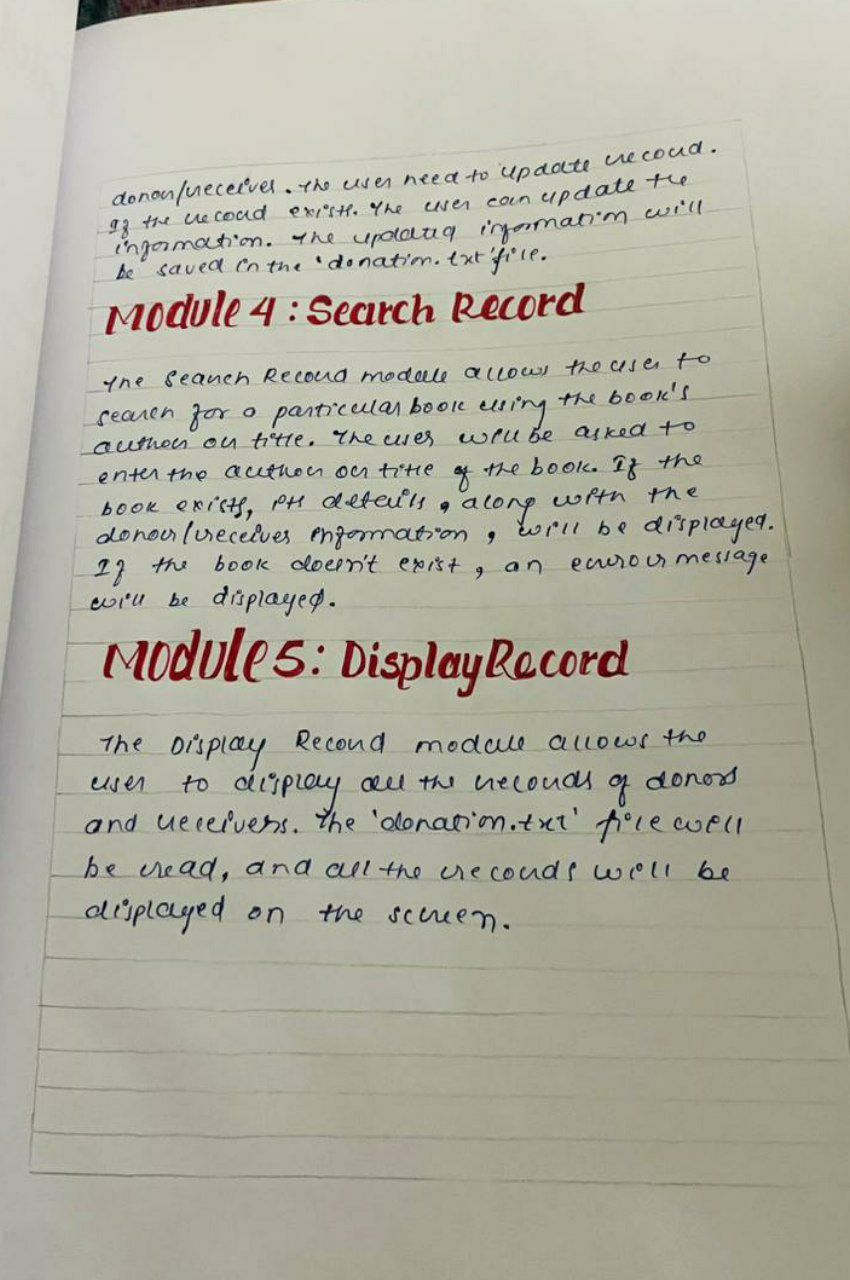 donor/receiver. The user need to update record.
If the record exists. The user can update the
information. The updating information will
be saved in the 'donation.txt' file.
Module 4 : Search Record
The Search Record module allows the user to
search for a particular book using the book's
author or title. The user will be asked to
enter the author or title of the book. If the
book exists, its details, along with the
donor/receiver information, will be displayed.
If the book doesn't exist, an error message
will be displayed.
Module 5: Display Record
The Display Record module allows the
user to display all the records of donors
and receivers. The 'donation.txt' file will
be read, and all the records will be
displayed on the screen.